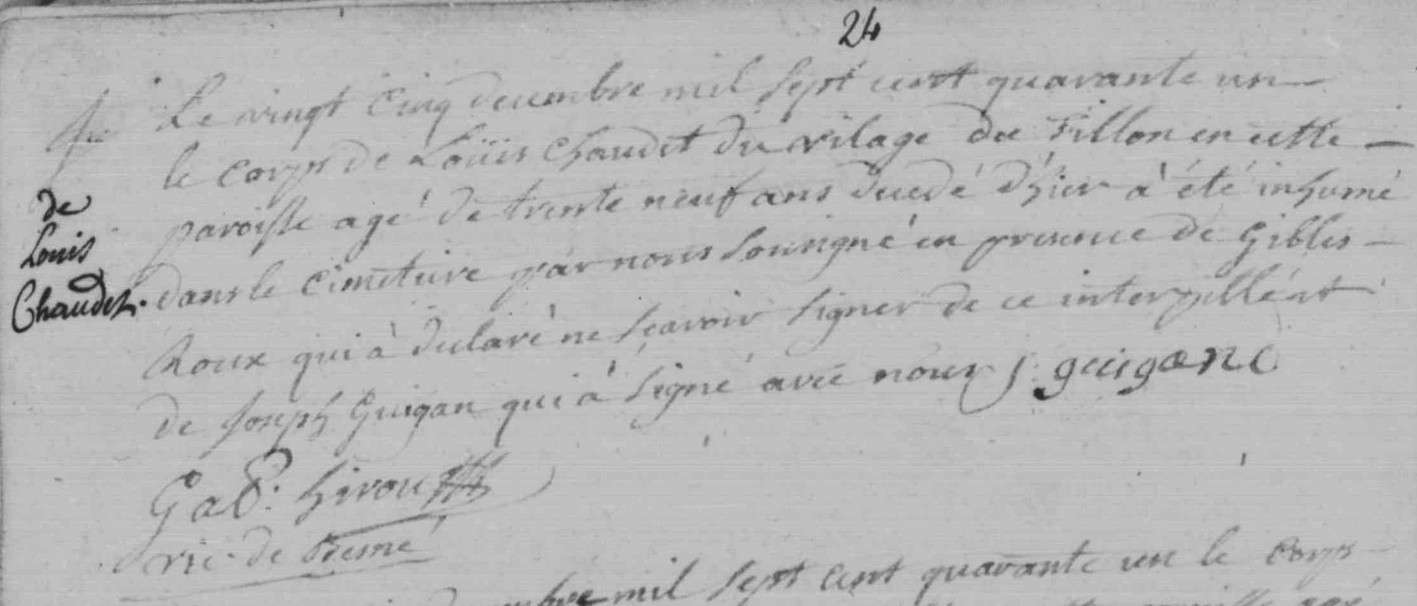 24
Le vingt cinq decembre mil sept cent quarante un
le corps de Loüis Chaudet du vilage du Fillon en cette
paroisse agé de trente neuf ans decedé d'hier à été inhumé
dans le cimetiere par nous sousigné en presence de Gibles
Roux qui à declaré ne sçavoir signer de ce interpellé et
de Joseph Guigan qui à signé avec nous J guigan
de
Louis
Chaudet.
Gab. Girou
vic. de
mil sept cent quarante un le corps